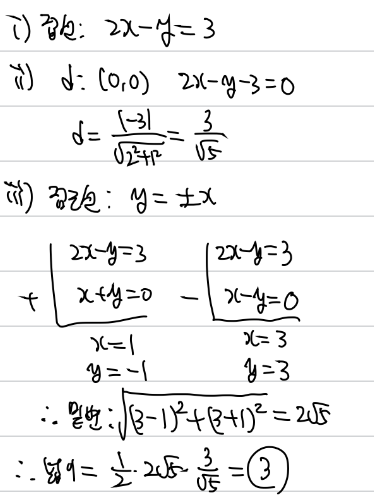 i) 접선: 2x-y=3
ii) d: (0,0) 2x-y-3=0
d= |-3| / √(2²+1²) = 3/√5
iii) 점근선: y=±x
+ 2x-y=3 - 2x-y=3
x+y=0 x-y=0
x=1 x=3
y=-1 y=3
∴ 밑변: √((3-1)²+(3+1)²) = 2√5
∴ 넓이= 1/2 · 2√5 · 3/√5 = 3